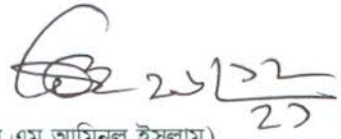 ২১/১২
২১
এম আমিনুল ইসলাম)